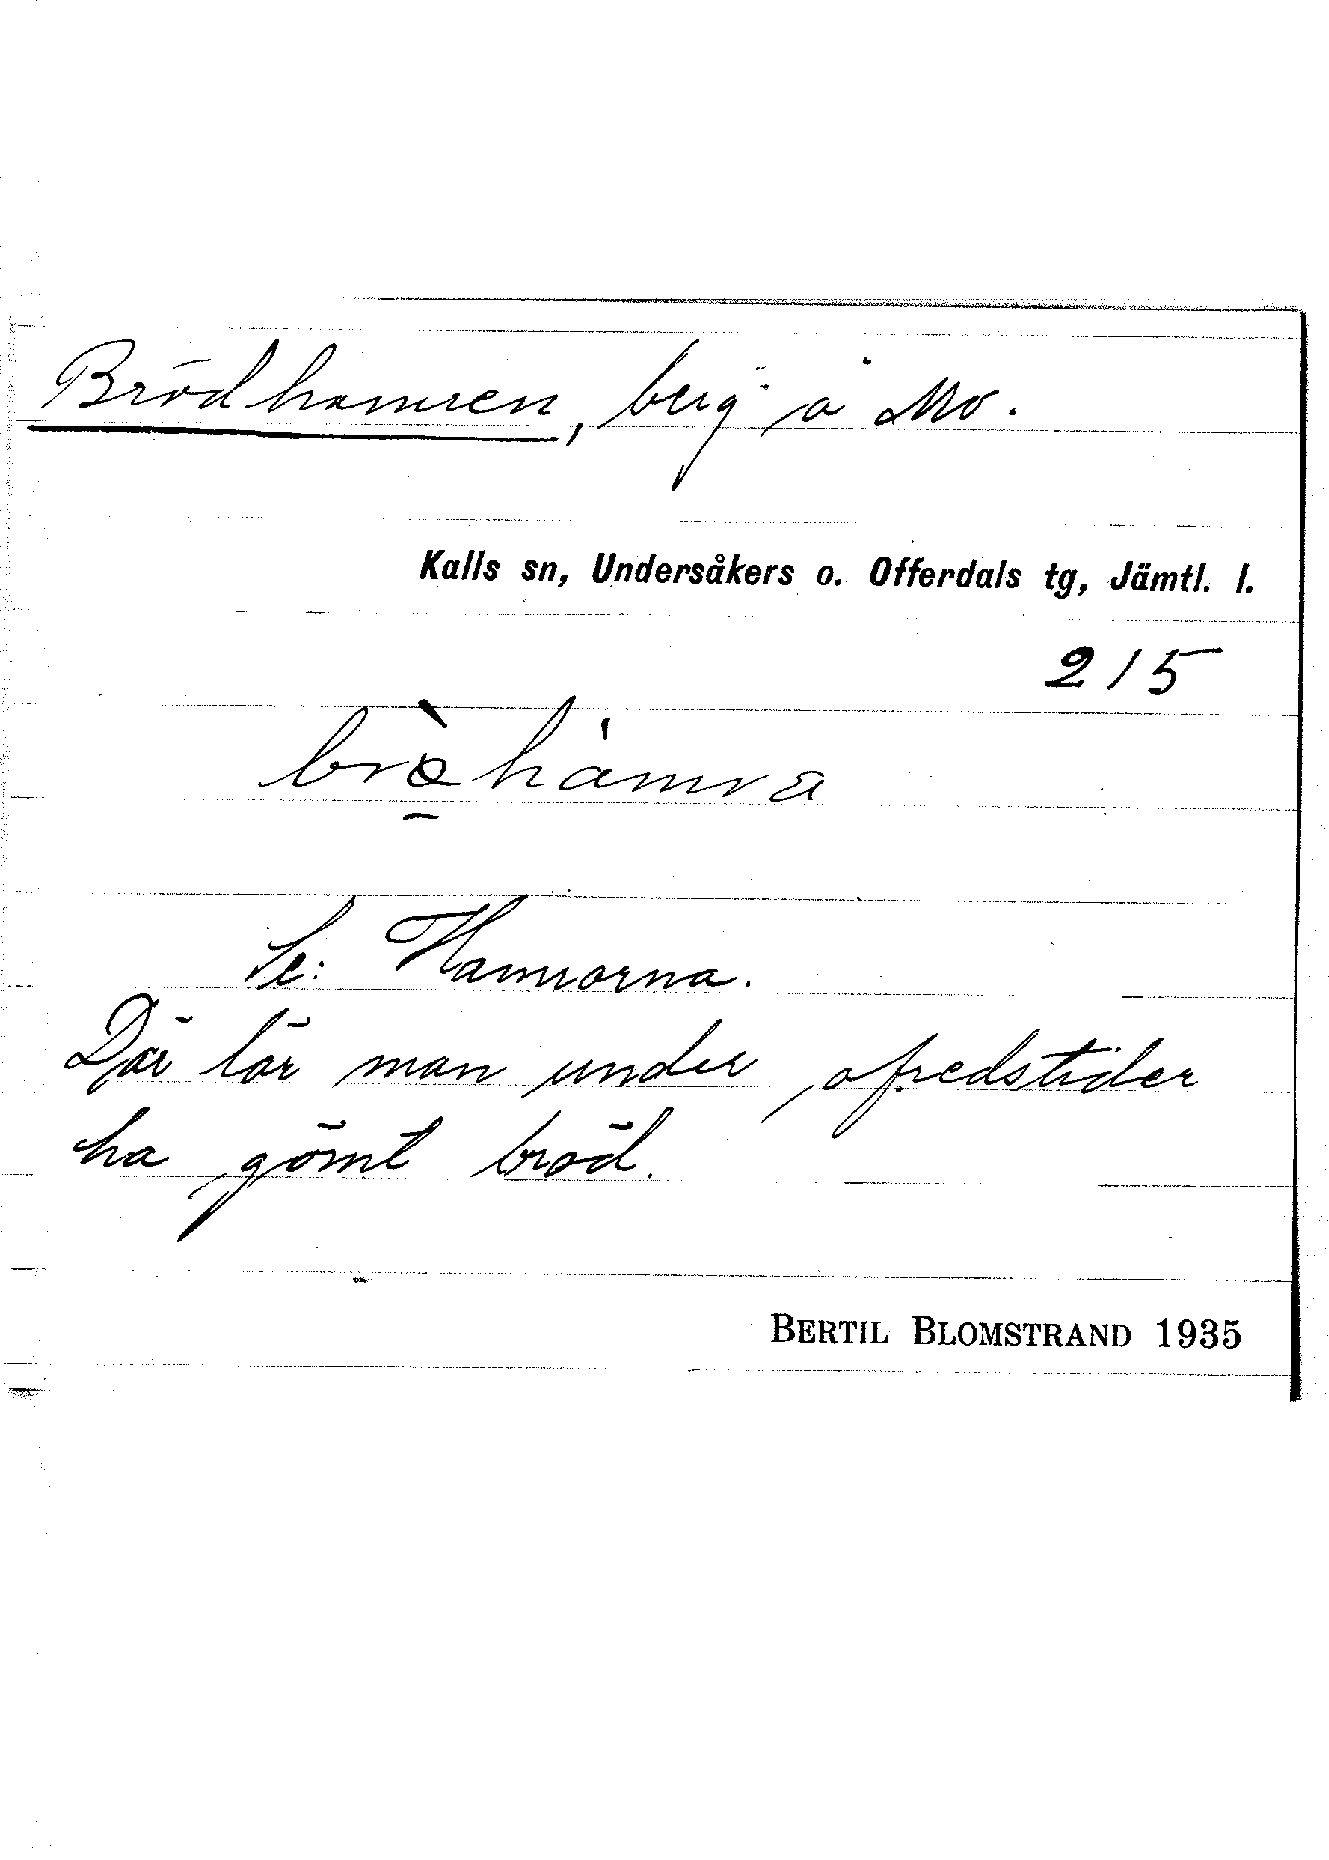 Brödhamren, berg å Mo.
Kalls sn, Undersåkers o. Offerdals tg, Jämtl. l.
215
Se: Hamrarna.
Där lär man under ofredstider
ha gömt bröd.
BERTIL BLOMSTRAND 1935